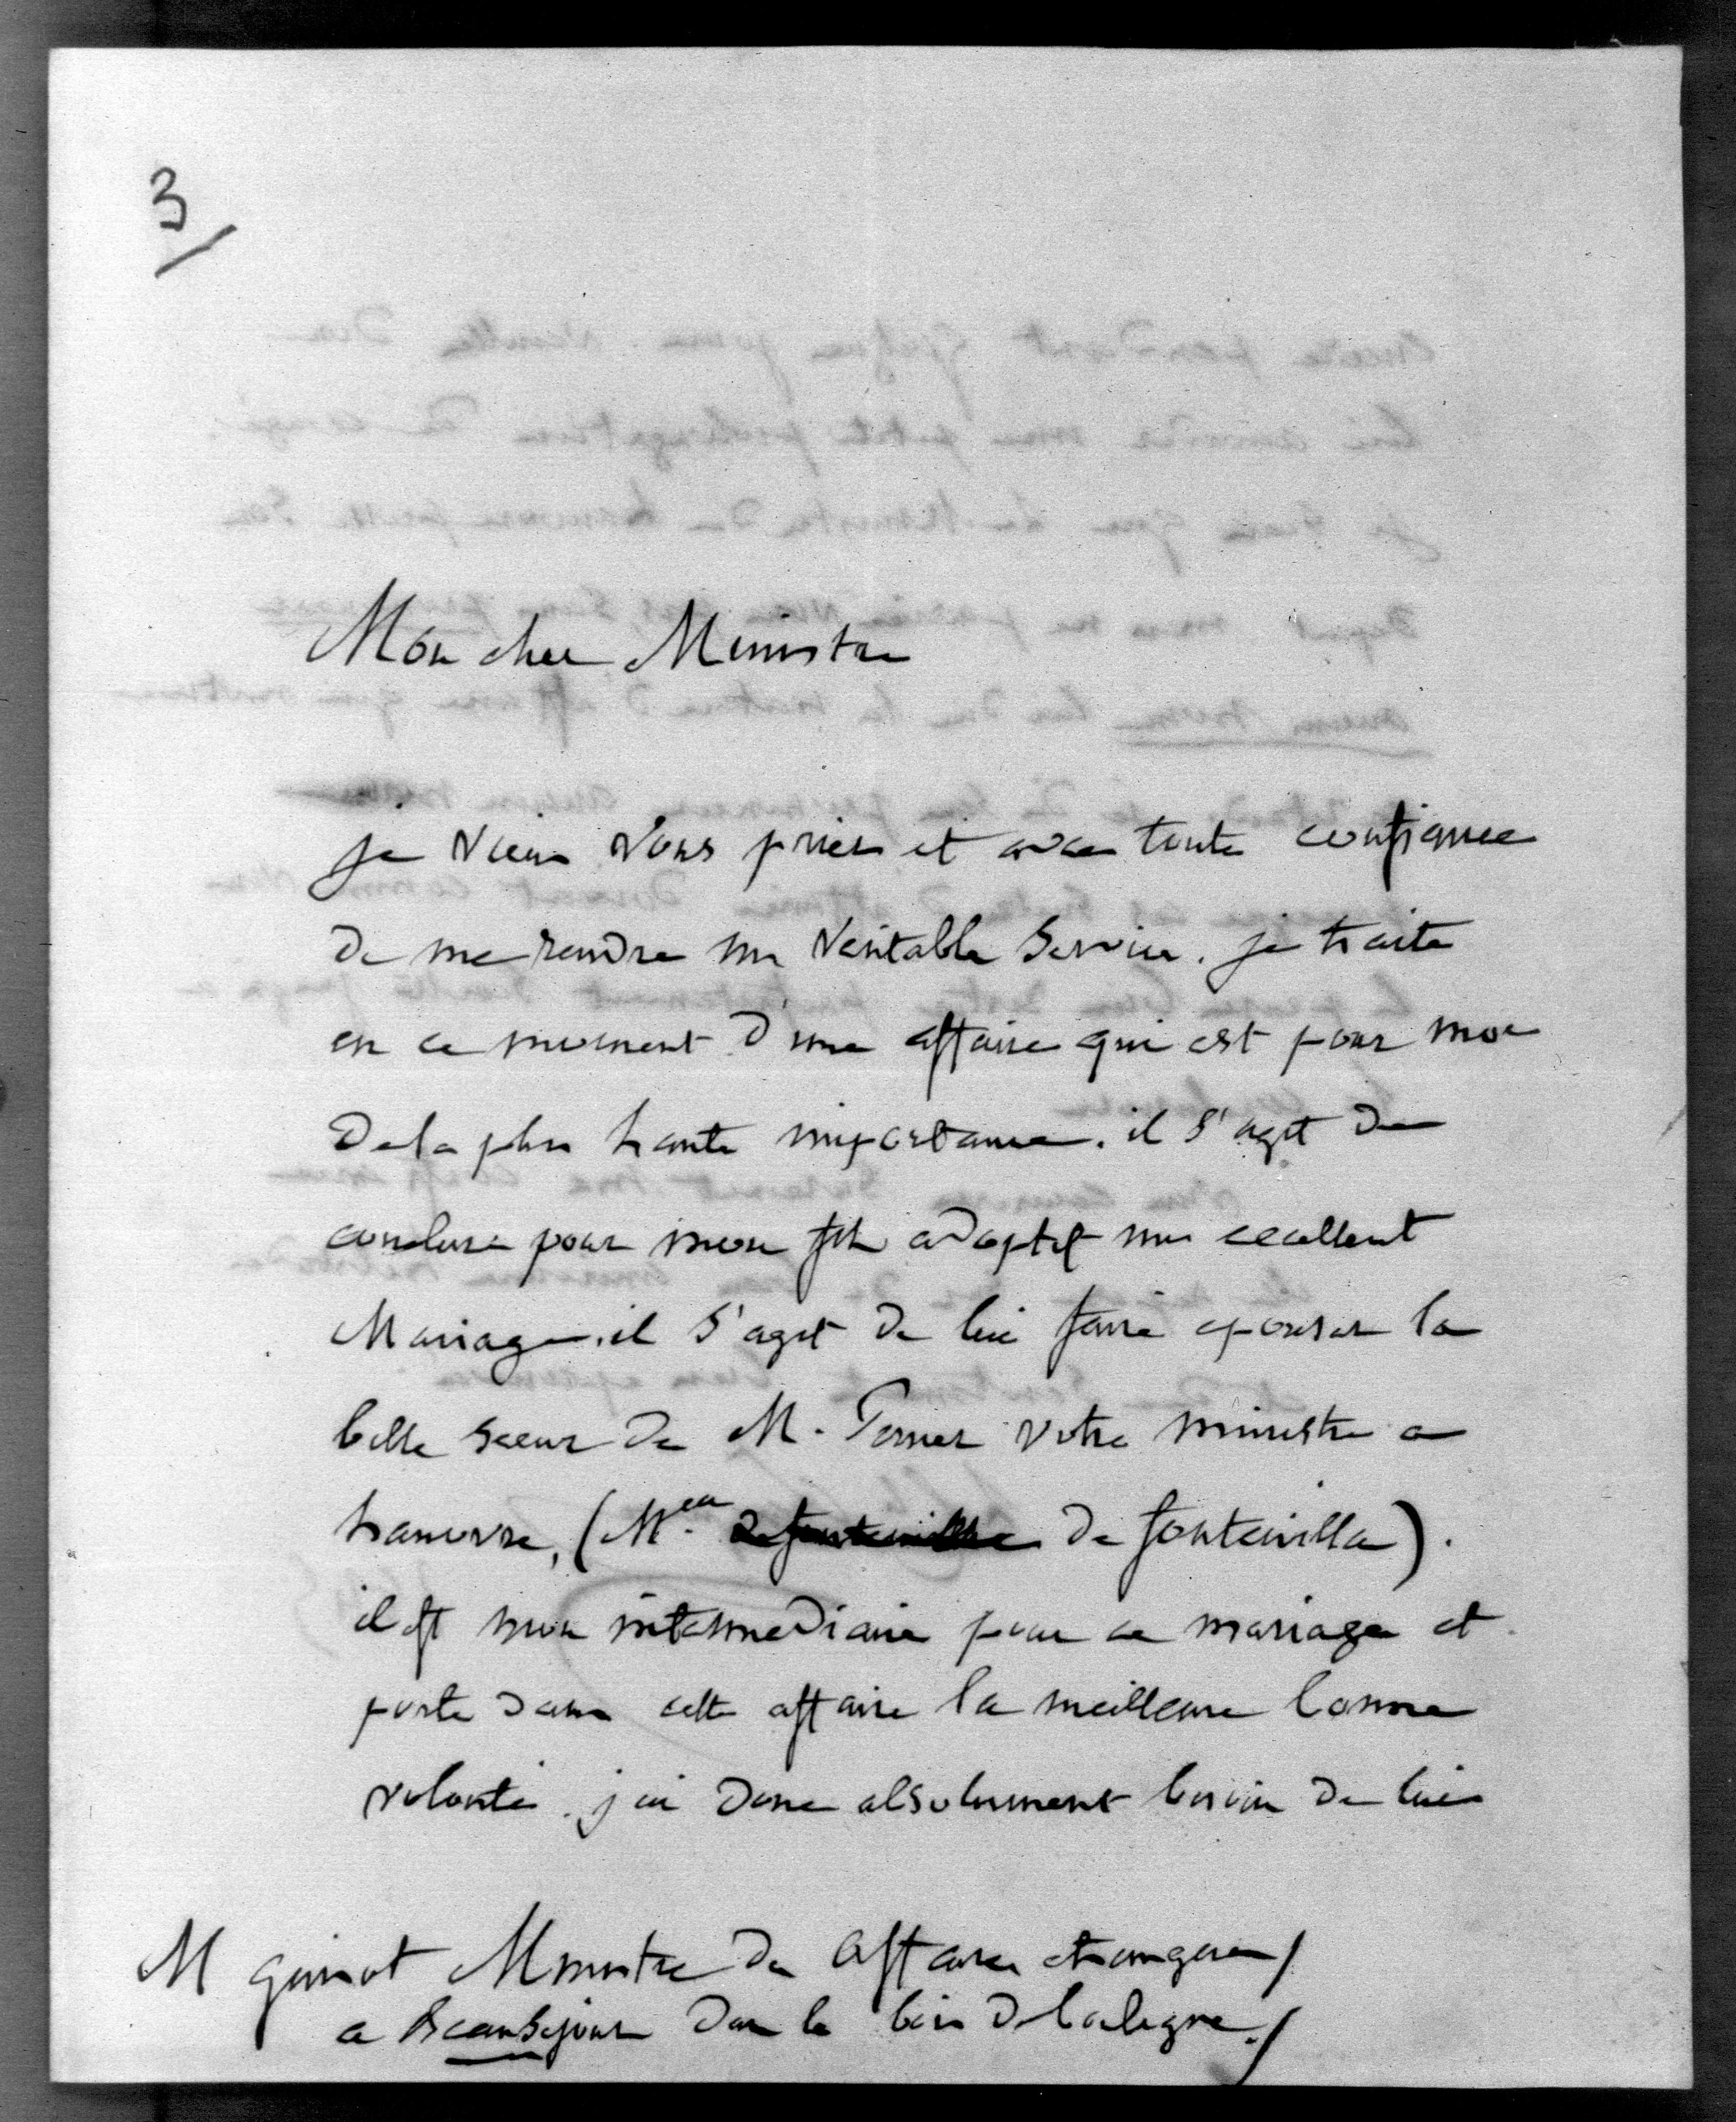 3/
Mon cher Ministre
je viens vous prier et avec toute confiance
de me rendre un veritable service. je traite
en ce moment d'une affaire qui est pour moi
de la plus haute importance. il s'agit de
conclure pour mon fils adoptif un excellent
Mariage. il s'agit de lui faire epouser la
belle soeur de M. votre ministre a
hanovre, (M.elle de fontenilla).
il est mon intermediaire pour ce mariage et
porte dans cette affaire la meilleure bonne
volonté. j'ai donc absolument besoin de lui
M guizot Ministre des affaires etrangeres/
a Beausejour dans le bois de boulogne./